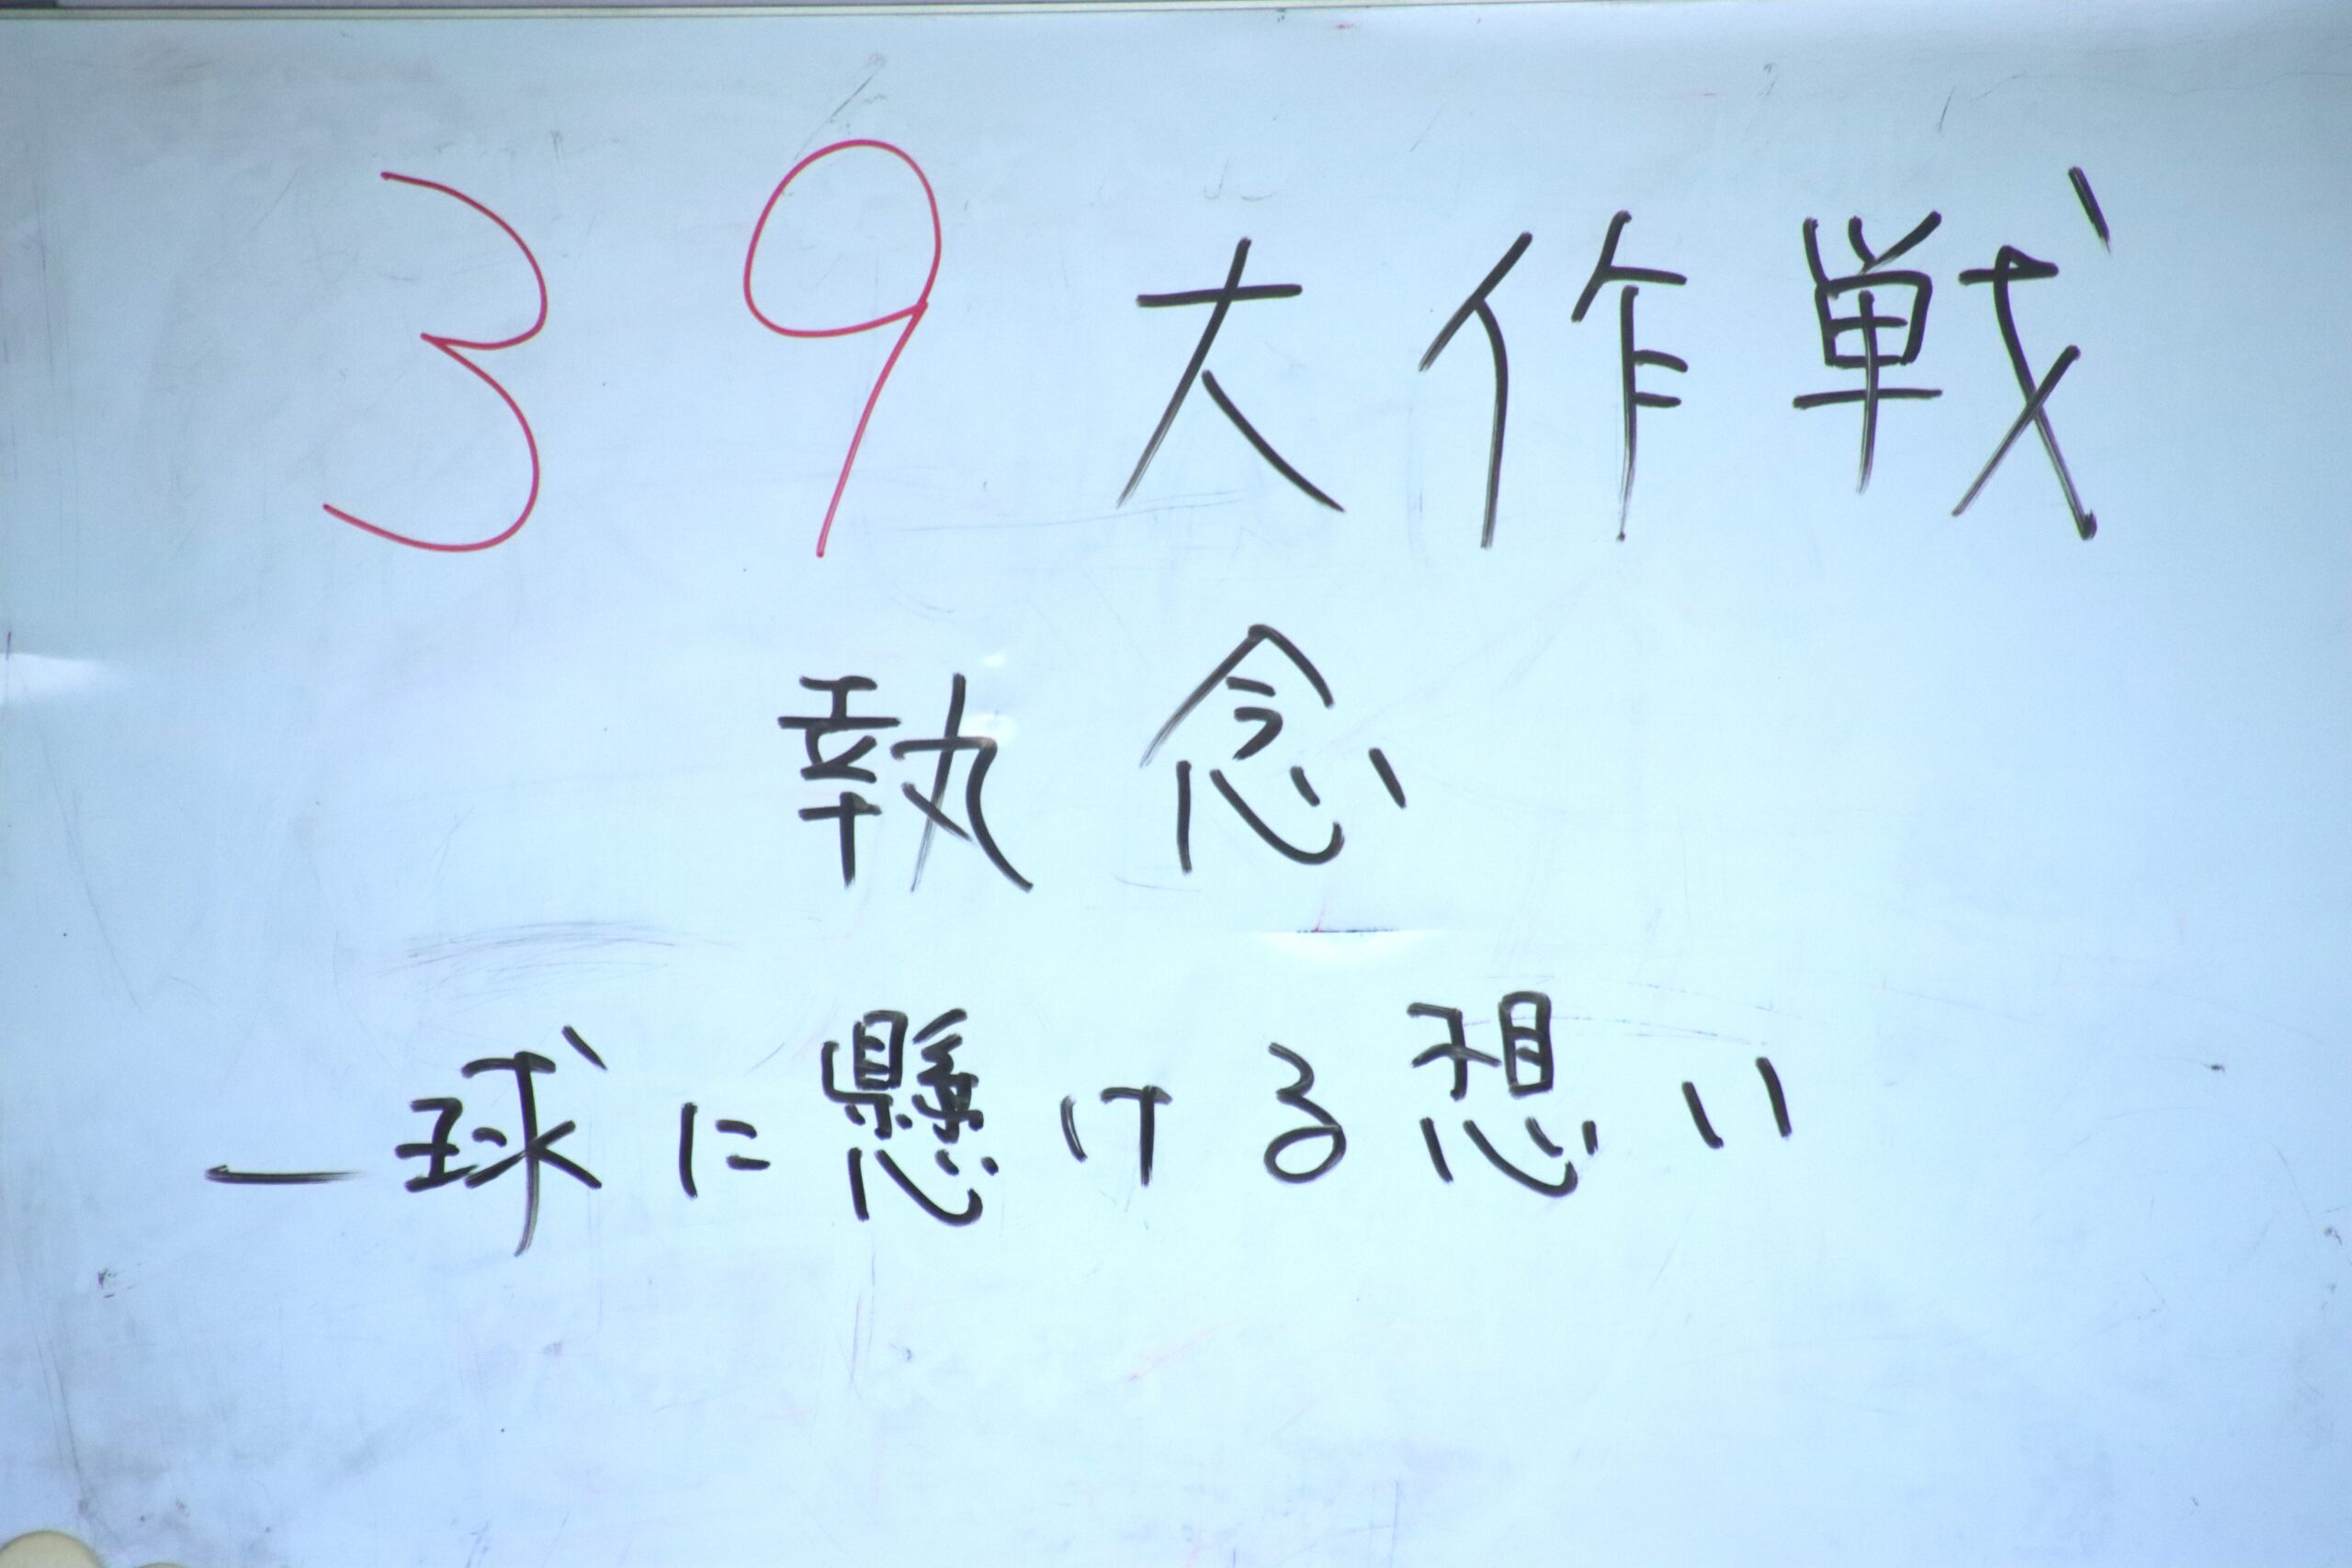 39大作戦
執念
一球に懸ける想い